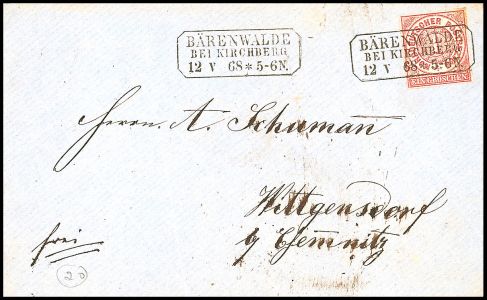 BÄRENWALDE
BEI KIRCHBERG
12 V 68 * 5-6N.
BÄRENWALDE
BEI KIRCHBERG
12 V 68 * 5-6N.
EIN GROSCHEN
Herrn A. Schumann
Wittgensdorf
b/ Chemnitz
frei
20